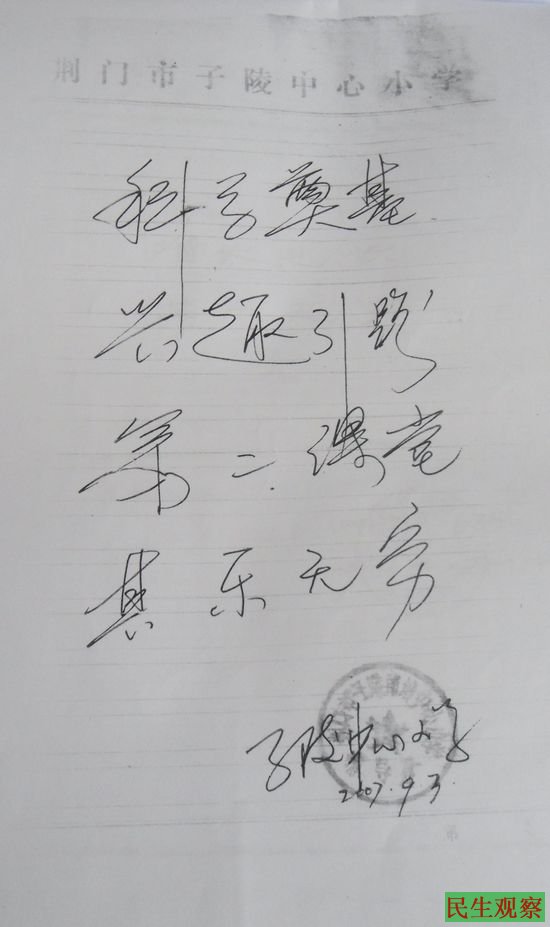 荆门市子陵中心小学
科学奠基
兴趣引路
第二课堂
其乐无穷
子陵中心小学
2007.9.3.
第
民生观察